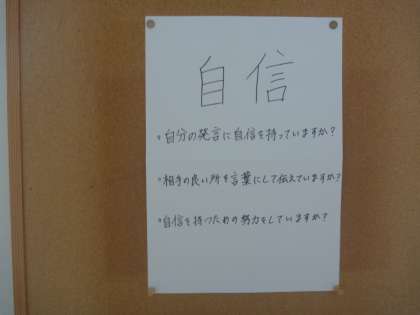 自信
・自分の発言に自信を持っていますか?
・相手の良い所を言葉にして伝えていますか?
・自信を持つための努力をしていますか?